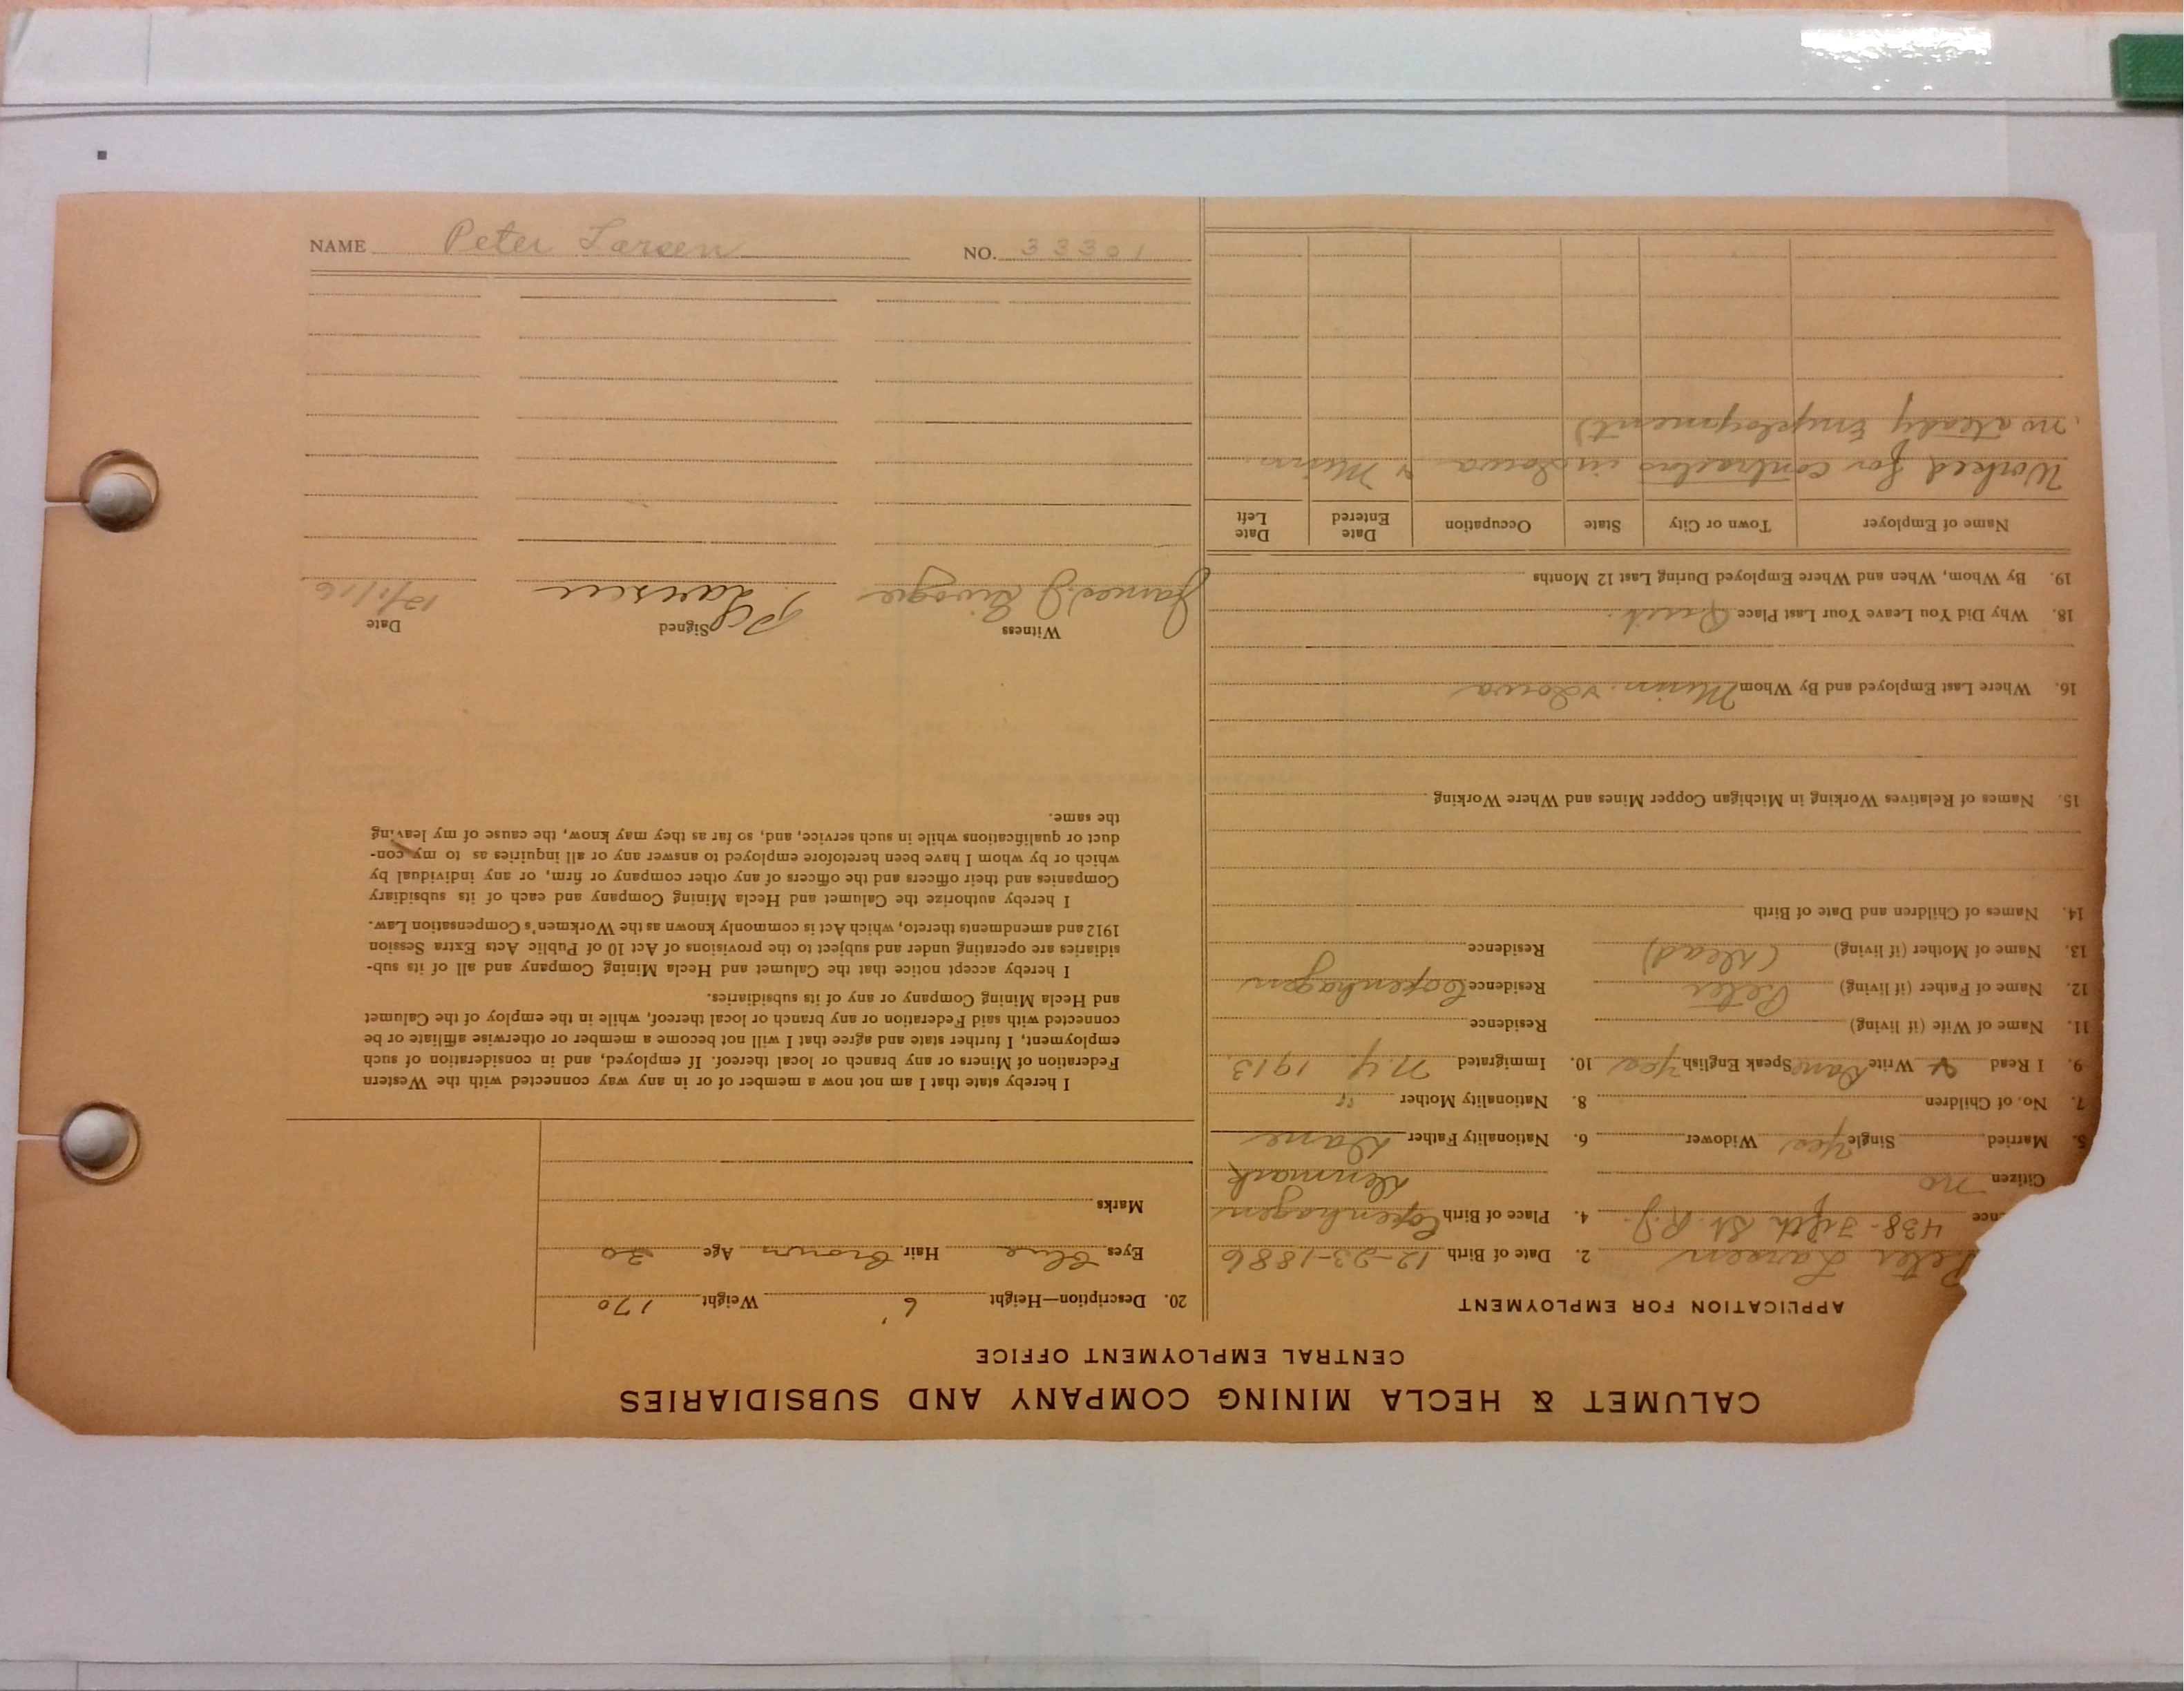 NAME Peter Larsen NO. 33301
CALUMET & HECLA MINING COMPANY AND SUBSIDIARIES
CENTRAL EMPLOYMENT OFFICE
APPLICATION FOR EMPLOYMENT
Peter Larsen 2. Date of Birth 12-23-1886
nce 438-Fifth St. R.J. 4. Place of Birth Copenhagen
Citizen no Denmark
5. Married Single Yes Widower 6. Nationality Father Dane
7. No. of Children 8. Nationality Mother "
9. I Read & Write Dane Speak English Yes 10. Immigrated N.Y. 1913
11. Name of Wife (if living) Residence
12. Name of Father (if living) Peter Residence Copenhagen
13. Name of Mother (if living) (Dead) Residence
14. Names of Children and Date of Birth
15. Names of Relatives Working in Michigan Copper Mines and Where Working
16. Where Last Employed and By Whom Minn. & Iowa
18. Why Did You Leave Your Last Place Quit.
19. By Whom, When and Where Employed During Last 12 Months
Name of Employer Town or City State Occupation Date Entered Date Left
Worked for contractors in Iowa & Minn.
no steady Employment)
20. Description—Height 6' Weight 170
Eyes Blue Hair Brown Age 30
Marks
I hereby state that I am not now a member of or in any way connected with the Western
Federation of Miners or any branch or local thereof. If employed, and in consideration of such
employment, I further state and agree that I will not become a member or otherwise affiliate or be
connected with said Federation or any branch or local thereof, while in the employ of the Calumet
and Hecla Mining Company or any of its subsidiaries.
I hereby accept notice that the Calumet and Hecla Mining Company and all of its sub-
sidiaries are operating under and subject to the provisions of Act 10 of Public Acts Extra Session
1912 and amendments thereto, which Act is commonly known as the Workmen's Compensation Law.
I hereby authorize the Calumet and Hecla Mining Company and each of its subsidiary
Companies and their officers and the officers of any other company or firm, or any individual by
which or by whom I have been heretofore employed to answer any or all inquiries as to my con-
duct or qualifications while in such service, and, so far as they may know, the cause of my leaving
the same.
Witness Signed Date
James J. Larsen 12/1/16